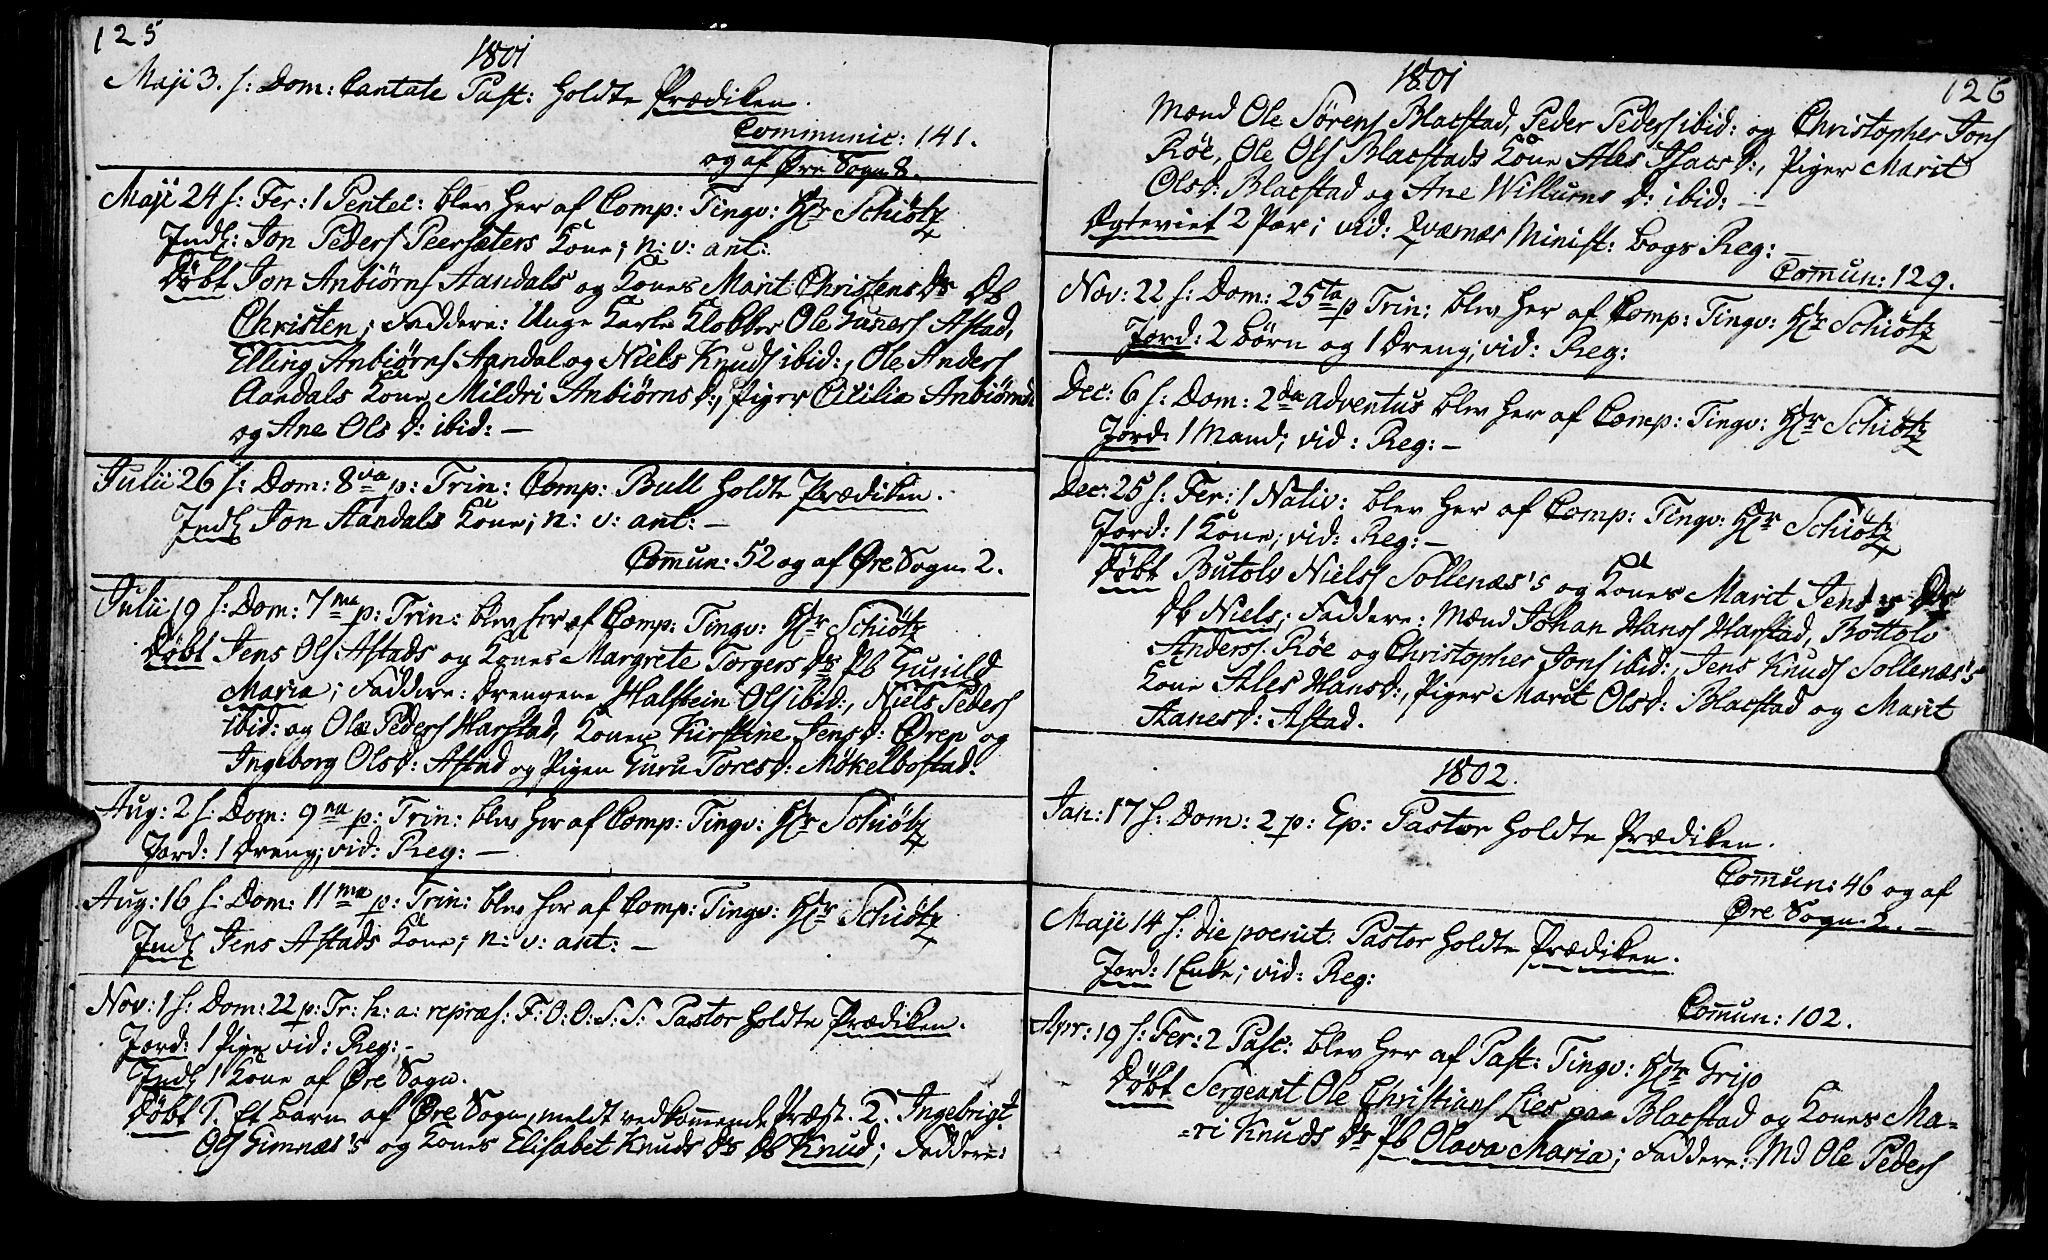 125
1801
Maji 3. s: Dom: Cantate Past: holdte Prædiken.
Communic: 141.
og af Øre Sogn 8.
Maji 24 s: Fer: 1 Pentec: blev her af Comp: Tingv: Hr Schiøtz
Indl: Jon Peders Peersæters Kone; n: v: ant:
Døbt Jon Anbiørns Aandals og Kones Marit Christens Dr Db
Christen; Faddere: Unge Karle Klokker Ole Gunners Astad,
Elling Anbiørns Aandal og Niels Knuds ibid:, Ole Anders
Aandals Kone Mildri Anbiørns D:, Piger Cicilia Anbiørnsd:
og Ane Ols D: ibid: —
Julii 26 s: Dom: 8va p: Trin: Comp: Bull holdte Prædiken.
Indl Jon Aandals Kone; n: v: ant: —
Comun: 52 og af Øre Sogn 2.
Julii 19 s: Dom: 7ma p: Trin: blev her af Comp: Tingv: Hr Schiøtz
Døbt Jens Ols Astads og Kones Margrete Torgers Dr Pb Gunild
Maria; Faddere: Drengene Halstein Ols ibid:, Niels Peders
ibid: og Ole Peders Harstad, Konen Kirstine Jensd: Øren og
Ingeborg Olsd: Astad og Pigen Guru Toresd: Mökelbostad.
Aug: 2 s: Dom: 9na p: Trin: blev her af Comp: Tingv: Hr Schiøtz
Jord: 1 Dreng; vid: Reg: —
Aug: 16 s: Dom: 11ma p: Trin: blev her af Comp: Tingv: Hr Schiøtz
Indl Jens Astads Kone; n: v: ant: —
Nov: 1 s: Dom: 22 p: Tr: h: a: repræs: F: O: O: S: S: Pastor holdte Prædiken.
Jord: 1 Pige vid: Reg: —
Indl 1 Kone af Øre Sogn.
Døbt T. Et barn af Øre Sogn, meldt vedkommende Præst. 2. Ingebrigt
Ols Gimnæs's og Kones Elisabet Knuds Dr Db Knud; Faddere:
126
1801
Mænd Ole Sörens Blacstad, Peder Peders ibid: og Christopher Jons
Röe, Ole Ols Blacstads Kone Ales Isacs D:, Piger Marit
Olsd: Blacstad og Ane Willums D: ibid: —
Ægteviet 2 Par; vid: Qværnæs Minist: bogs Reg: —
Comun: 129.
Nov: 22 s: Dom: 25ta p Trin: blev her af Comp: Tingv: Hr Schiøtz
Jord: 2 börn og 1 Dreng; vid: Reg:
Dec: 6 s: Dom: 2da adventus blev her af Comp: Tingv: Hr Schiøtz
Jord: 1 Mand; vid: Reg: —
Dec: 25 s: Fer: 1 Nativ: blev her af Comp: Tingv: Hr Schiøtz
Jord: 1 Kone; vid: Reg: —
Døbt Butolv Niels Sollenæs's og Kones Marit Jens Dr
Db Niels; Faddere: Mænd Johan Hans Harstad, Bottolv
Anders. Röe og Christopher Jons ibid:, Jens Knuds Sollenæs's
Kone Ales Hansd:, Piger Marit Olsd: Blacstad og Marit
Aanesd: Astad.
1802.
Jan: 17 s: Dom: 2 p: Ep: Pastor holdte Prædiken.
Comun: 46 og af
Øre Sogn 2. —
Maji 14 s: die poenit: Pastor holdte Prædiken.
Jord: 1 Enke; vid: Reg:
Comun: 102.
Apr: 19 s: Fer: 2 Pasc: blev her af Past: Tingv: Hr Grip
Døbt Sergeant Ole Christians Lies paa Blacstad og Kones Ma-
-ri Knuds Dr Pb Olava Maria; Faddere: Md Ole Peders